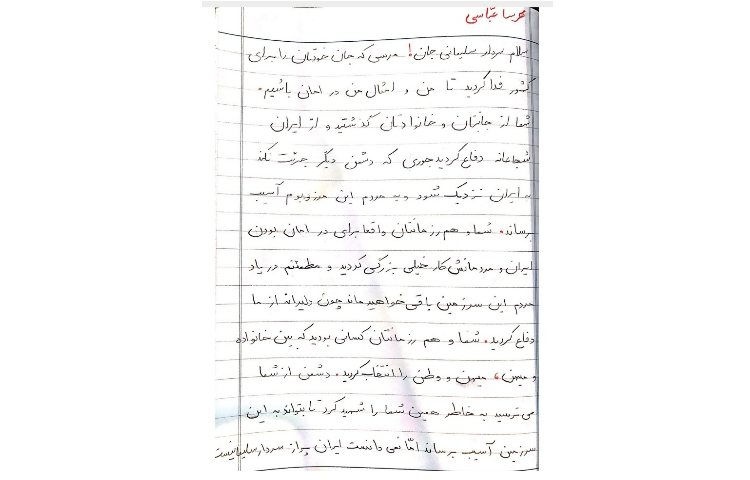 عباسی
سلام سردار سلیمانی جان! مرسی که جان خودتان را برای
کشور فدا کردید تا من و امثال من در امان باشیم.
شما از جانتان و خانوادتان گذشتید و از ایران
شجاعانه دفاع کردید جوری که دشمن دیگر جرئت نکند
به ایران نزدیک شود و به مردم این مرزوبوم آسیب
برساند. شما و هم رزمانتان واقعا برای در امان بودن
ایران و مردمانش کار خیلی بزرگی کردید و مطمئنم در یاد
مردم این سرزمین باقی خواهید ماند چون دلیرانه از ما
دفاع کردید. شما و هم رزمانتان کسانی بودید که بین خانواده
و میهن، میهن و وطن را انتخاب کردید. دشمن از شما
می ترسید به خاطر همین شما را شهید کرد تا بتواند به این
سرزمین آسیب برساند امّا نمی دانست ایران پر از سردار سلیمانیست